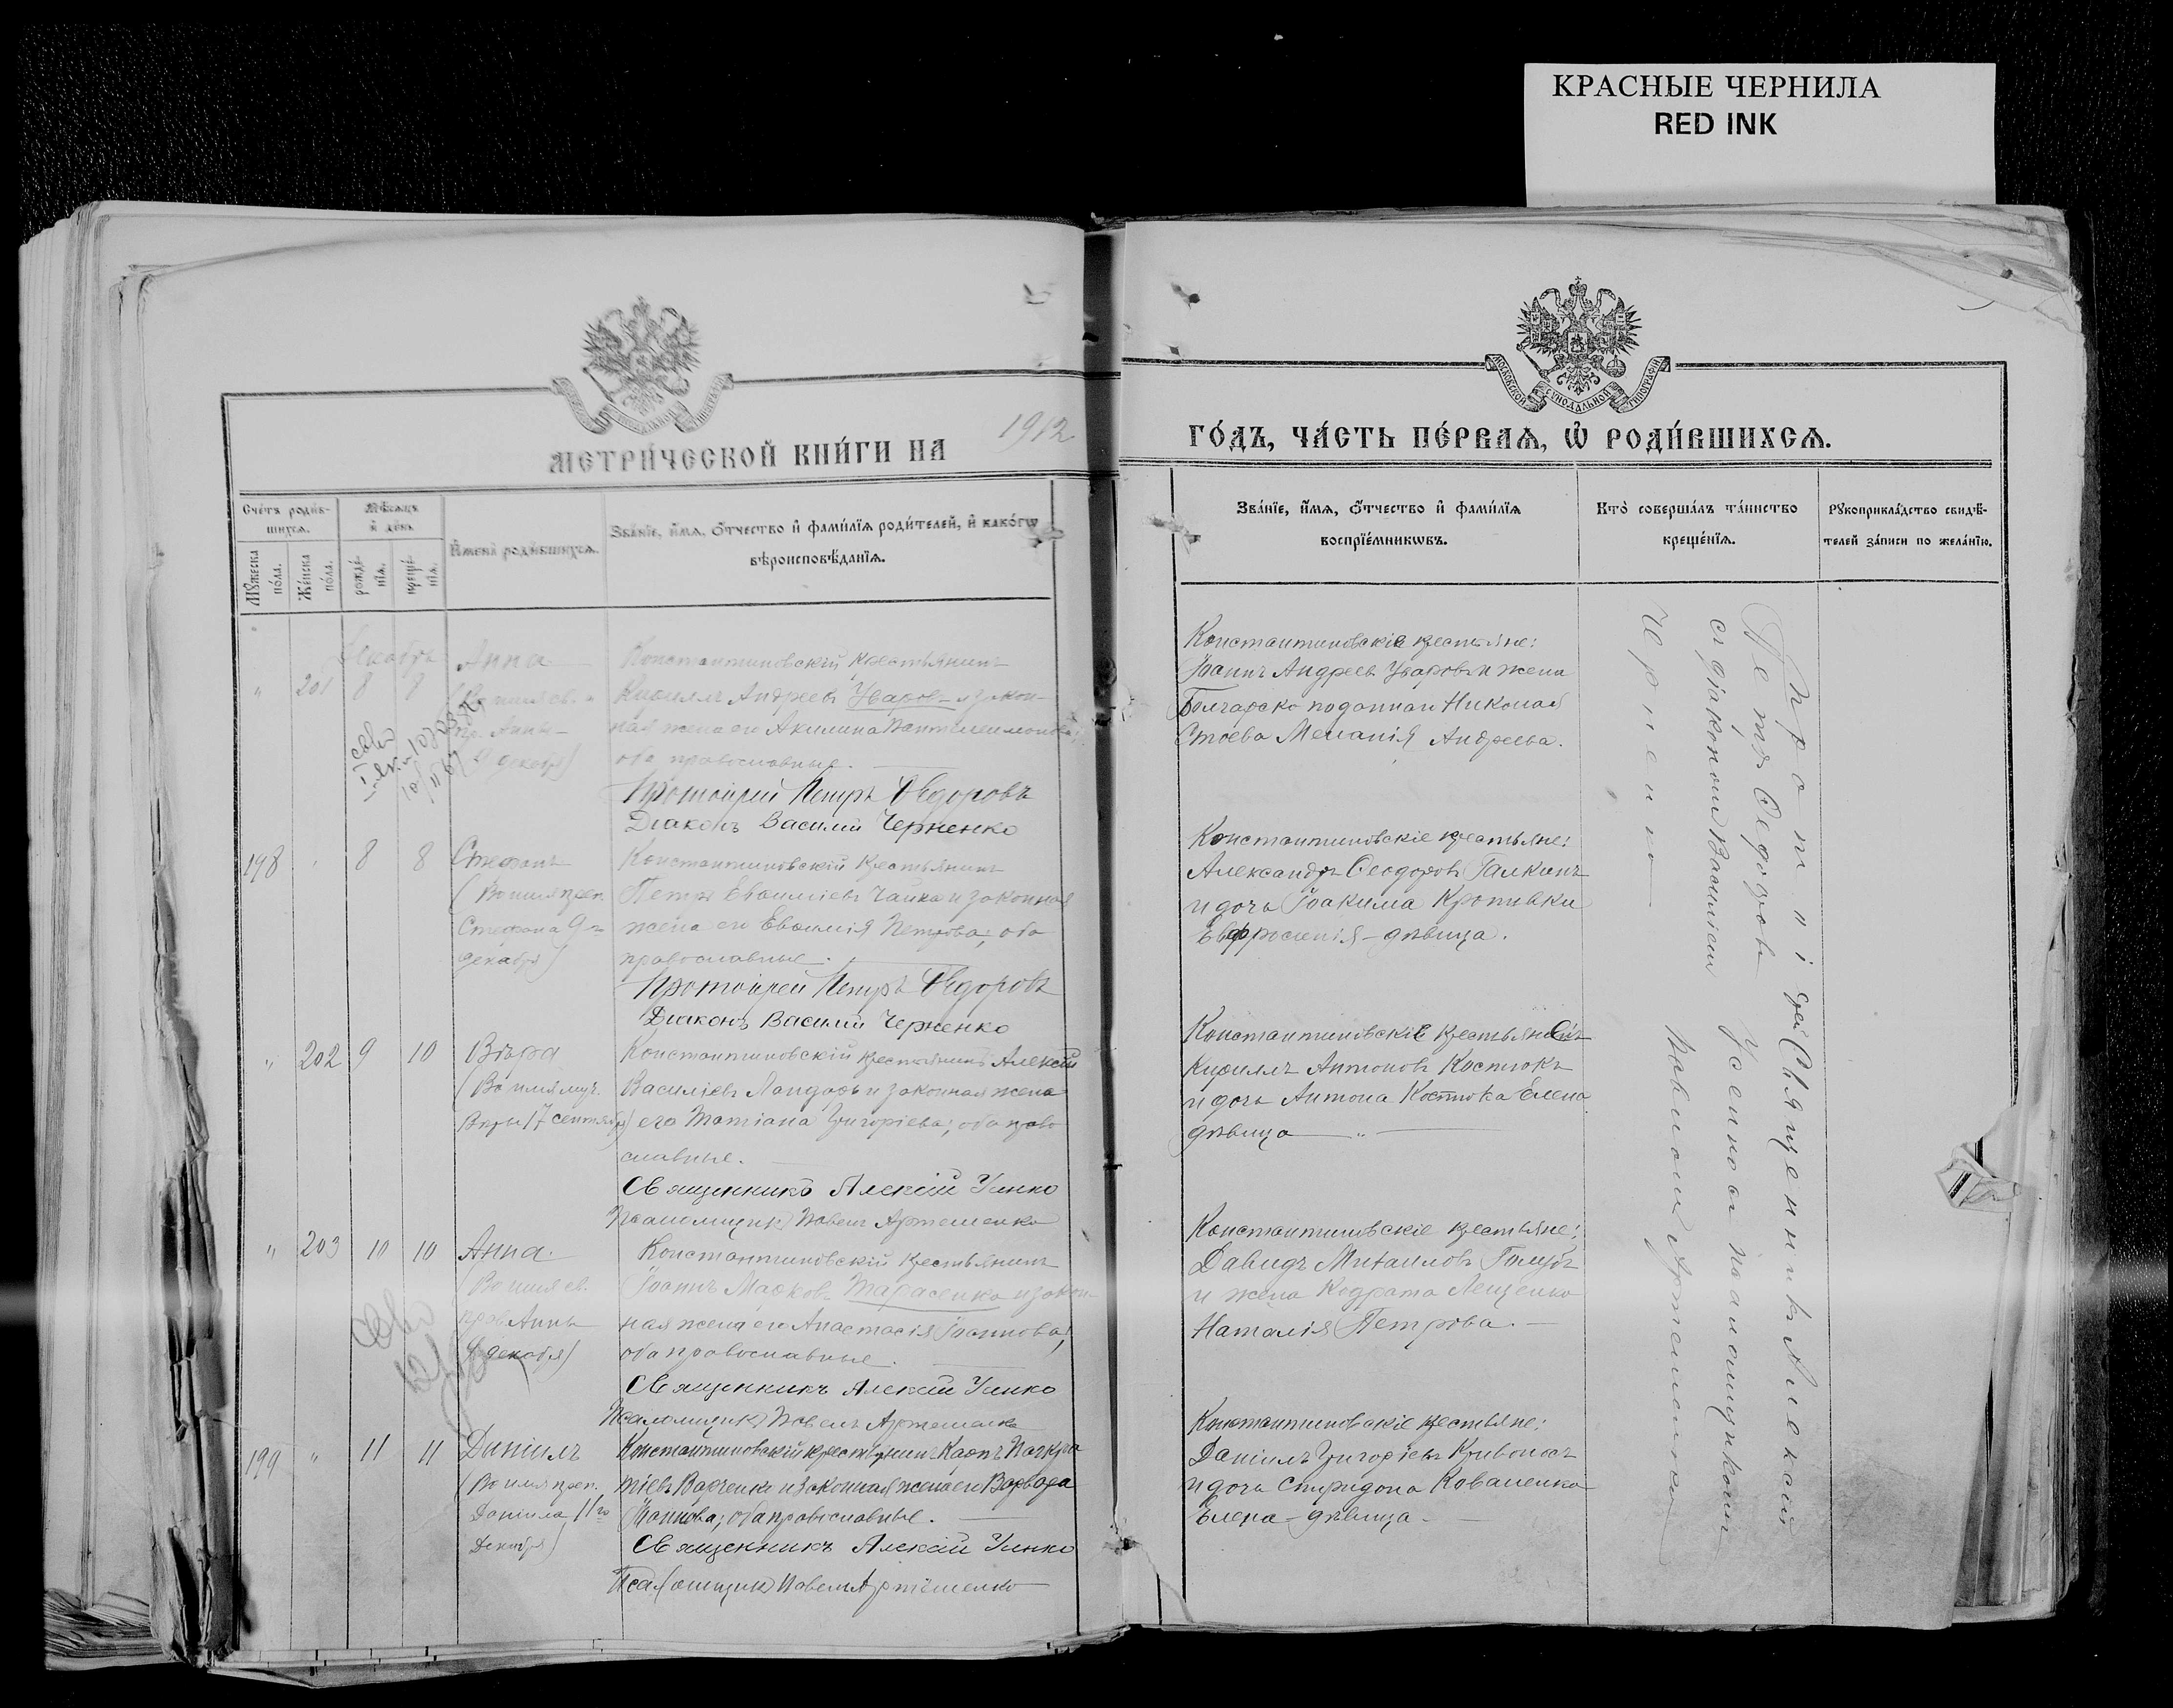 КРАСНЫЕ ЧЕРНИЛА
RED INK
МЕТРИ́ЧЕСКОЙ КНИ́ГИ НА 1912
ГО́ДЪ, ЧА́СТЬ ПЕ́РВАѦ, Ѡ҆ РОДИ́ВШИХСѦ.
Сче́тъ роди́в-
шихсѧ.
Мѣ́сѧцъ
и҆ де́нь
Мꙋ́жеска
по́ла.
Же́нска
по́ла.
рожде́-
нїѧ.
креще́-
нїѧ.
И҆мена̀ роди́вшихсѧ.
Зва́нїе, и҆́мѧ, ѻ҆́тчество и҆ фами́лїѧ роди́телей, и҆ како́гѡ
вѣроисповѣ́данїѧ.
Зва́нїе, и҆́мѧ, ѻ҆́тчество и҆ фами́лїѧ
воспрїе́мникѡвъ.
Кто̀ соверша́лъ та́инство
креще́нїѧ.
Рꙋкоприкла́дство свидѣ́-
телей за́писи по жела́нїю.
Декабрь
" 201 8 8
Анна
(Во имя св.
пр. Анны
9 декабря)
Константиновскій крестьянинъ
Кириллъ Андреевъ Уваровъ и закон-
ная жена его Акилина Пантелеимонова;
оба православные.
Протоіерей Петръ Ѳедоровъ
Діаконъ Василій Черненко
Константиновскіе крестьяне:
Іоаннъ Андреевъ Уваровъ и жена
Болгарско подданнаго Николая
Стоева Меланія Андреева.
198 " 8 8
Стефанъ
(Во имя преп.
Стефана 9го
декабря)
Константиновскій крестьянинъ
Петръ Евѳиміевъ Чайка и законная
жена его Евѳимія Петрова; оба
православные.
Протоіерей Петръ Ѳедоровъ
Діаконъ Василій Черненко
Константиновскіе крестьяне:
Александръ Ѳеодоровъ Галкинъ
и дочь Іоакима Кропивки
Евфросинія - дѣвица.
" 202 9 10
Вѣра
(Во имя муч.
Вѣры 17 сентября)
Константиновскій крестьянинъ Алексій
Василіевъ Ландарь и законная жена
его Татіана Григоріева; оба право
славные.
Священникъ Алексій Усенко
Псаломщикъ Павелъ Артеменко
Константиновскіе крестьяне:
Кириллъ Антоновъ Костюкъ
и дочь Антона Костюка Елена
дѣвица
" 203 10 10
Анна.
(Во имя св.
прав. Анны
9 декабря)
Константиновскій крестьянинъ
Іоаннъ Марковъ Тарасенко и закон-
ная жена его Анастасія Іоаннова;
оба православные.
Священникъ Алексій Усенко
Псаломщикъ Павелъ Артеменко
Константиновскіе крестьяне:
Давидъ Михаиловъ Голубъ
и жена Кодрата Лещенко
Наталія Петрова.
199 " 11 11
Даніилъ
(Во имя преп.
Даніила 11го
Декабря)
Константиновскій крестьянинъ Карпъ Панкра
тіевъ Варченко и законная жена его Варвара
Іоаннова; оба православные.
Священникъ Алексій Усенко
Псаломщикъ Павелъ Артеменко
Константиновскіе крестьяне:
Даніилъ Григоріевъ Кривоносъ
и дочь Спиридона Коваленко
Елена - дѣвица.
Протоіерей
Петръ Ѳедоровъ
съ діакономъ Василіемъ
Черненко
Священникъ Алексій
Усенко съ псаломщикомъ
Павломъ Артеменкомъ